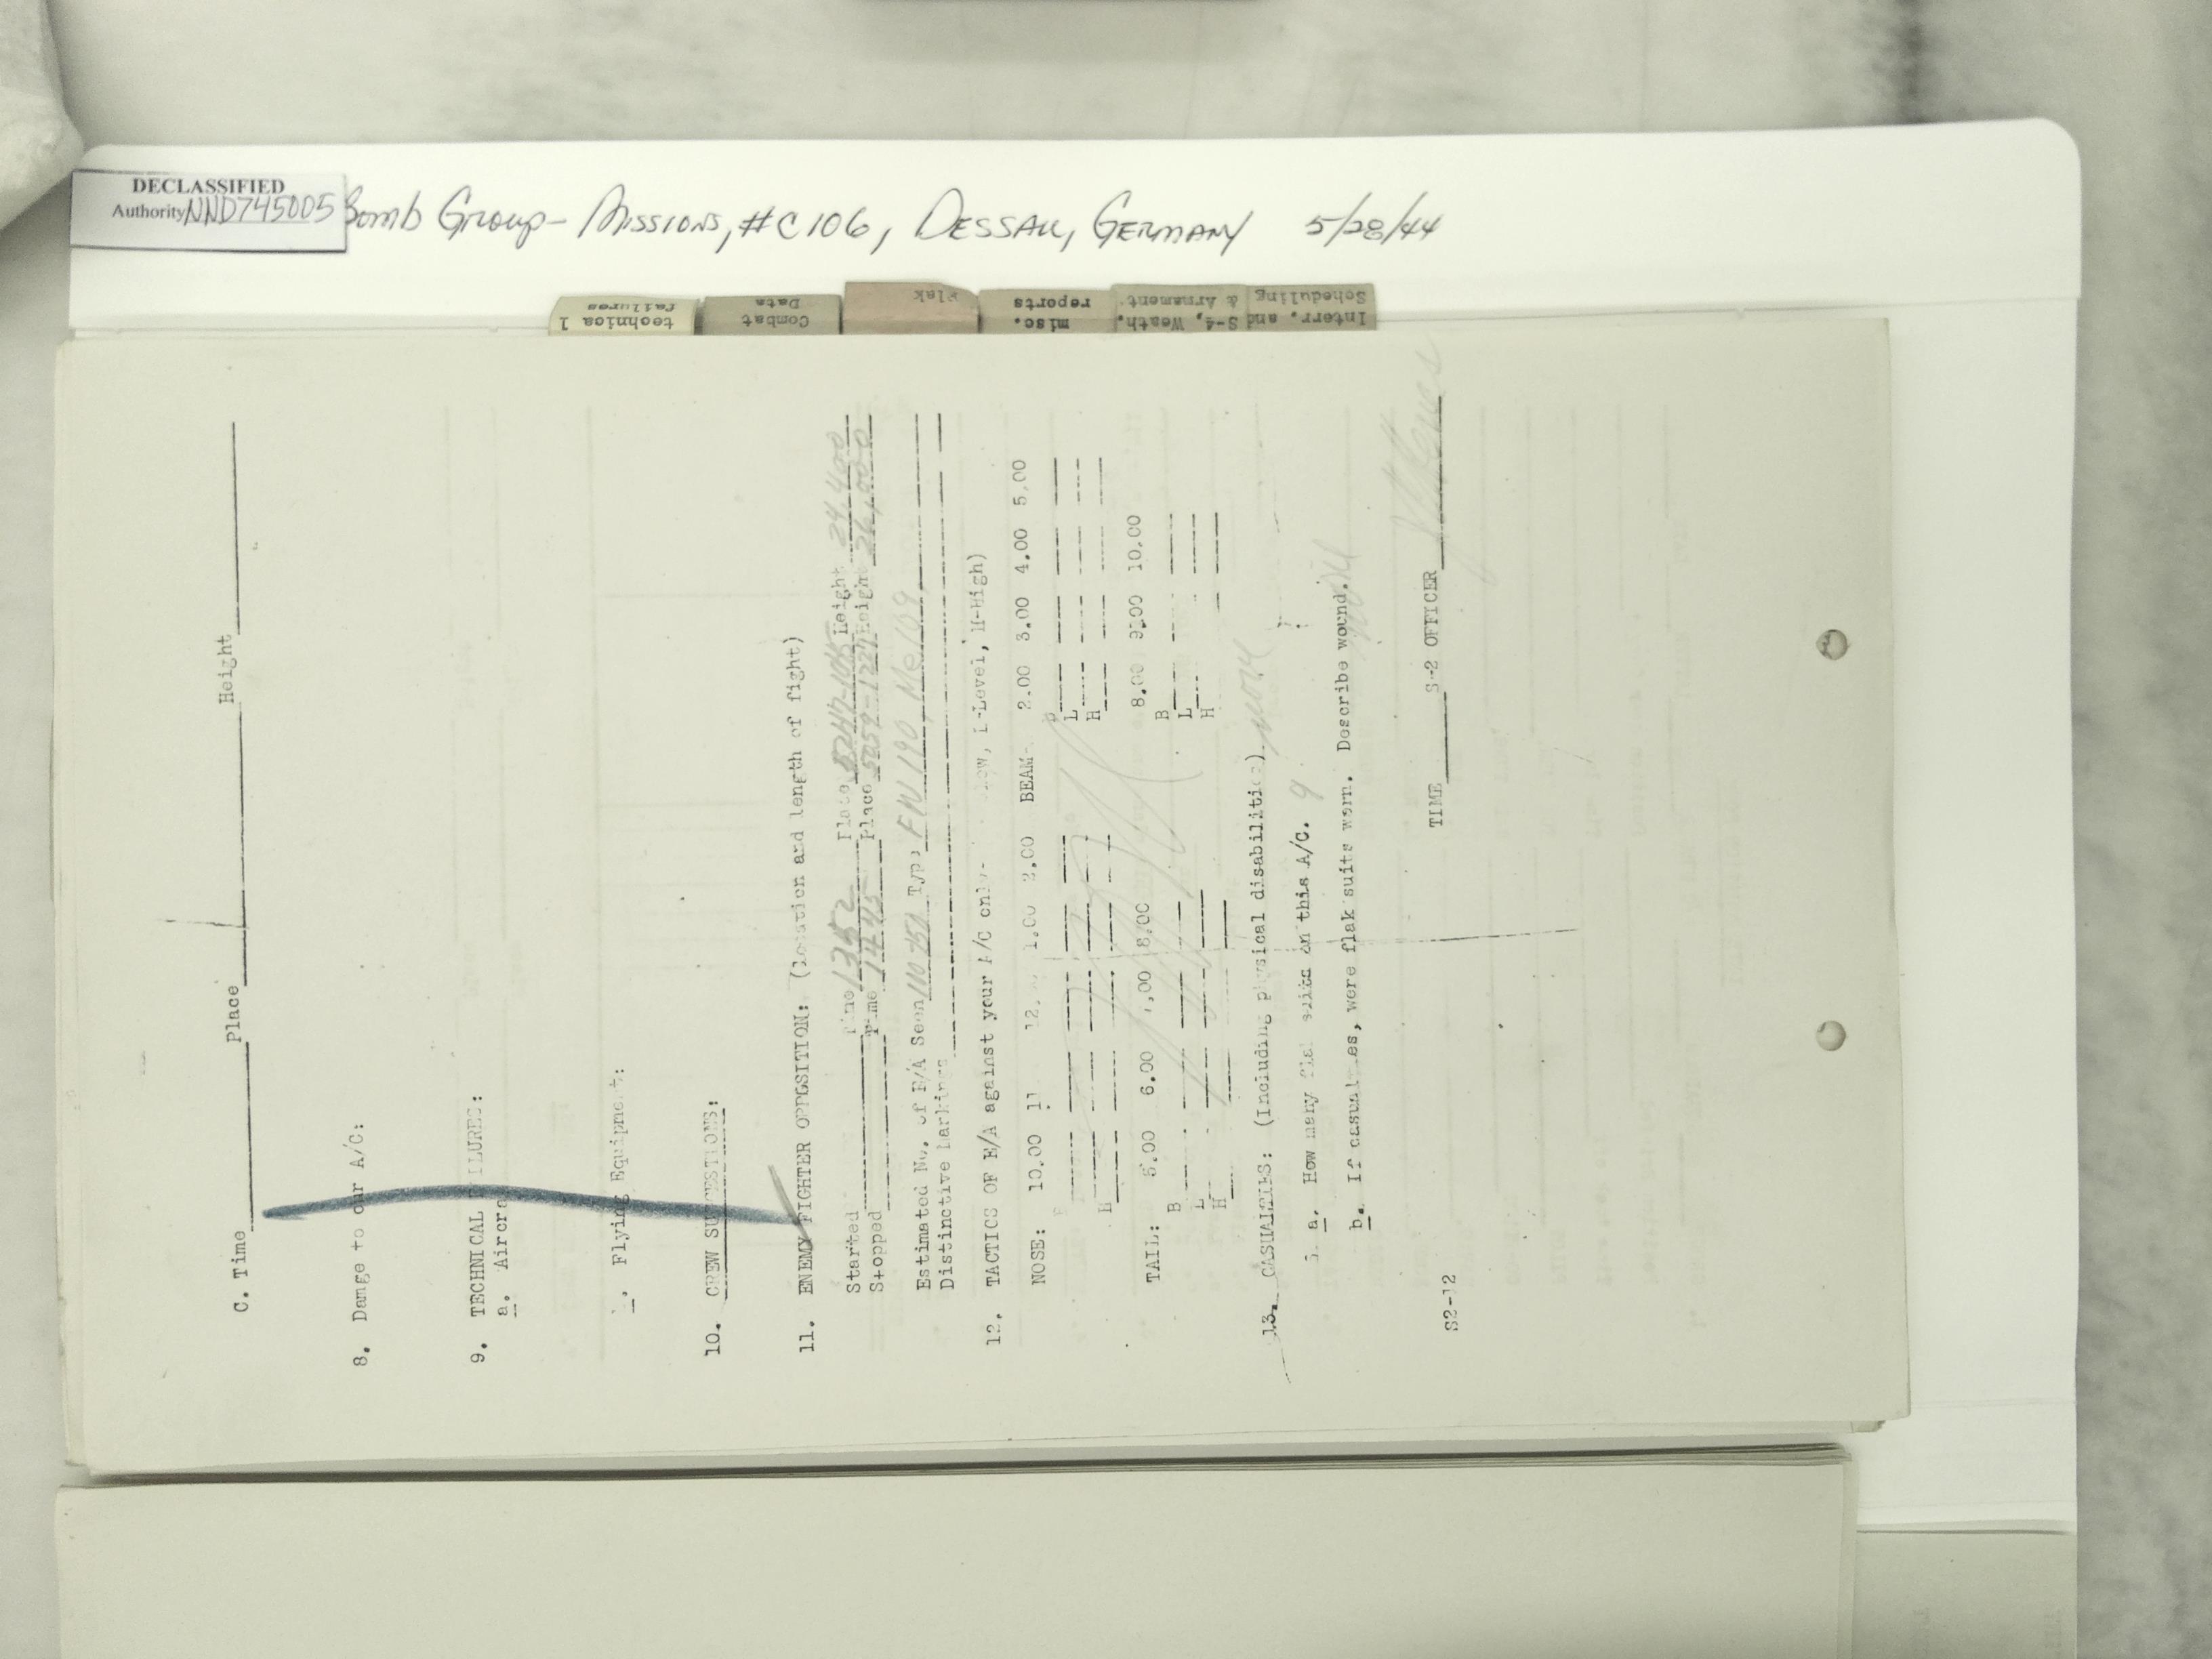 DECLASSIFIED
Authority NND745005
Bomb Group - Missions, #C106, Dessau, Germany 5/28/44
technical failures
Combat Data
Flak
misc. reports
S-4, Weath. & Armament
Interr. and Scheduling
C. Time Place Height
8. Damage to our A/C:
9. TECHNICAL FAILURES:
a. Aircraft
Flying Equipment:
10. CREW SUGGESTIONS:
11. ENEMY FIGHTER OPPOSITION: (location and length of fight)
Started Time 1352 Place Height 24,400
Stopped Time 1445 Place Height 26,000
Estimated No. of E/A Seen Type FW 190, Me 109
Distinctive Markings
12. TACTICS OF E/A against your A/C only- L-Level, H-High)
NOSE: 10.00 11 12. 1.00 2.00 BEAM- 2.00 3.00 4.00 5.00
L
H H
TAIL: 5.00 6.00 7.00 8.00 8.00 9:00 10.00
B B
L L
H H
13. CASUALTIES: (Including physical disabilities) none
a. How many flak suits on this A/C. 9
b. If casualties, were flak suits worn. Describe wound.
TIME S-2 OFFICER
S2-12